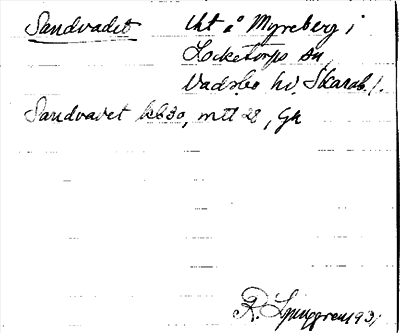 Sandvadet
tht å Myreberg i
Locketorps sn
Vadsbo hd. Skarab. l.
Sandvadet kb 30, mtl 28, Gk
R. Ljunggren 1931